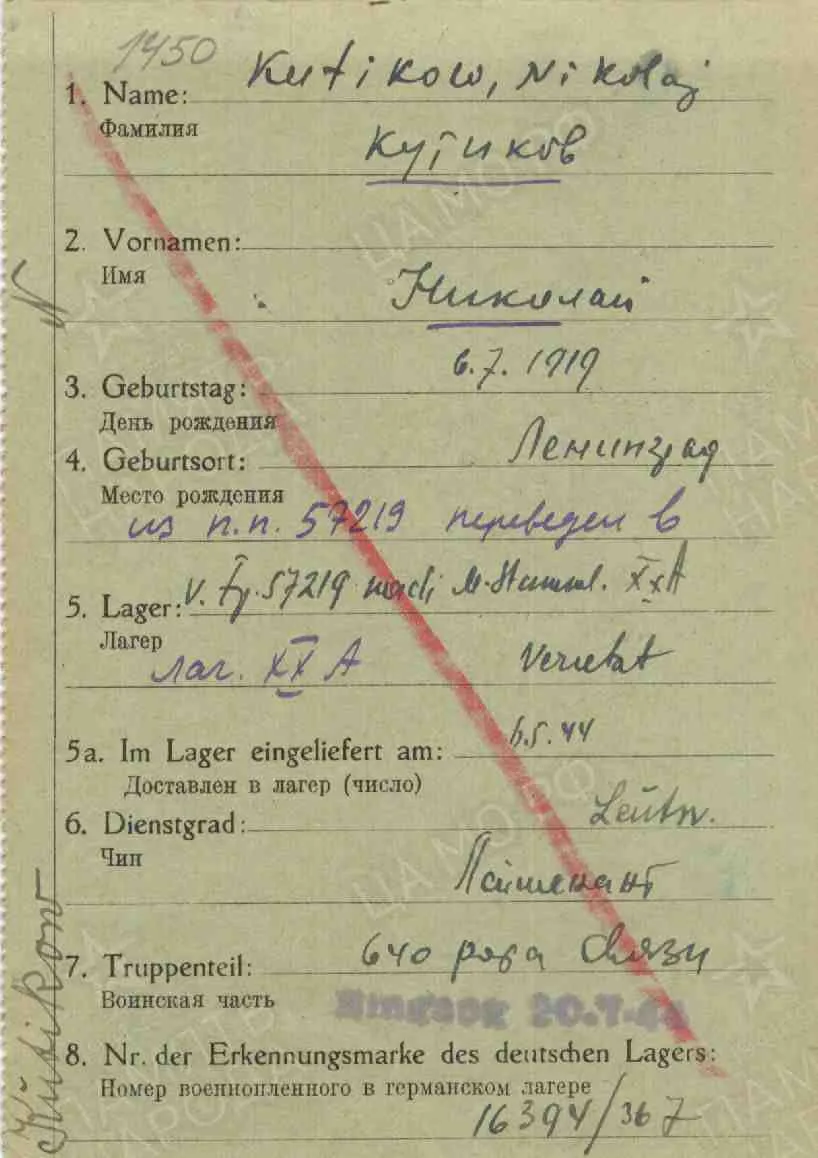 1450
Kutikow, Nikolaj
1. Name:
Фамилия
Кутиков
2. Vornamen:
Имя
Николай
6.7.1919
3. Geburtstag:
День рождения
4. Geburtsort: Ленинград
Место рождения
из п.п. 57219 переведен в
5. Lager: V. 57219 nach M-Stamml. XXA
Лагер
лаг. XX A
5a. Im Lager eingeliefert am: 6.5.44
Доставлен в лагер (число)
6. Dienstgrad: Leutn.
Чин
Лейтенант
7. Truppenteil: 640 рота связи
Воинская часть
8. Nr. der Erkennungsmarke des deutschen Lagers:
Номер военнопленного в германском лагере
16394/367
N
Kutikow
ЦАМО.РФ